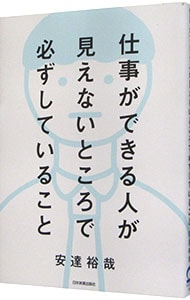 仕事ができる人が
見えないところで
必ずしていること
安達裕哉
日本実業出版社